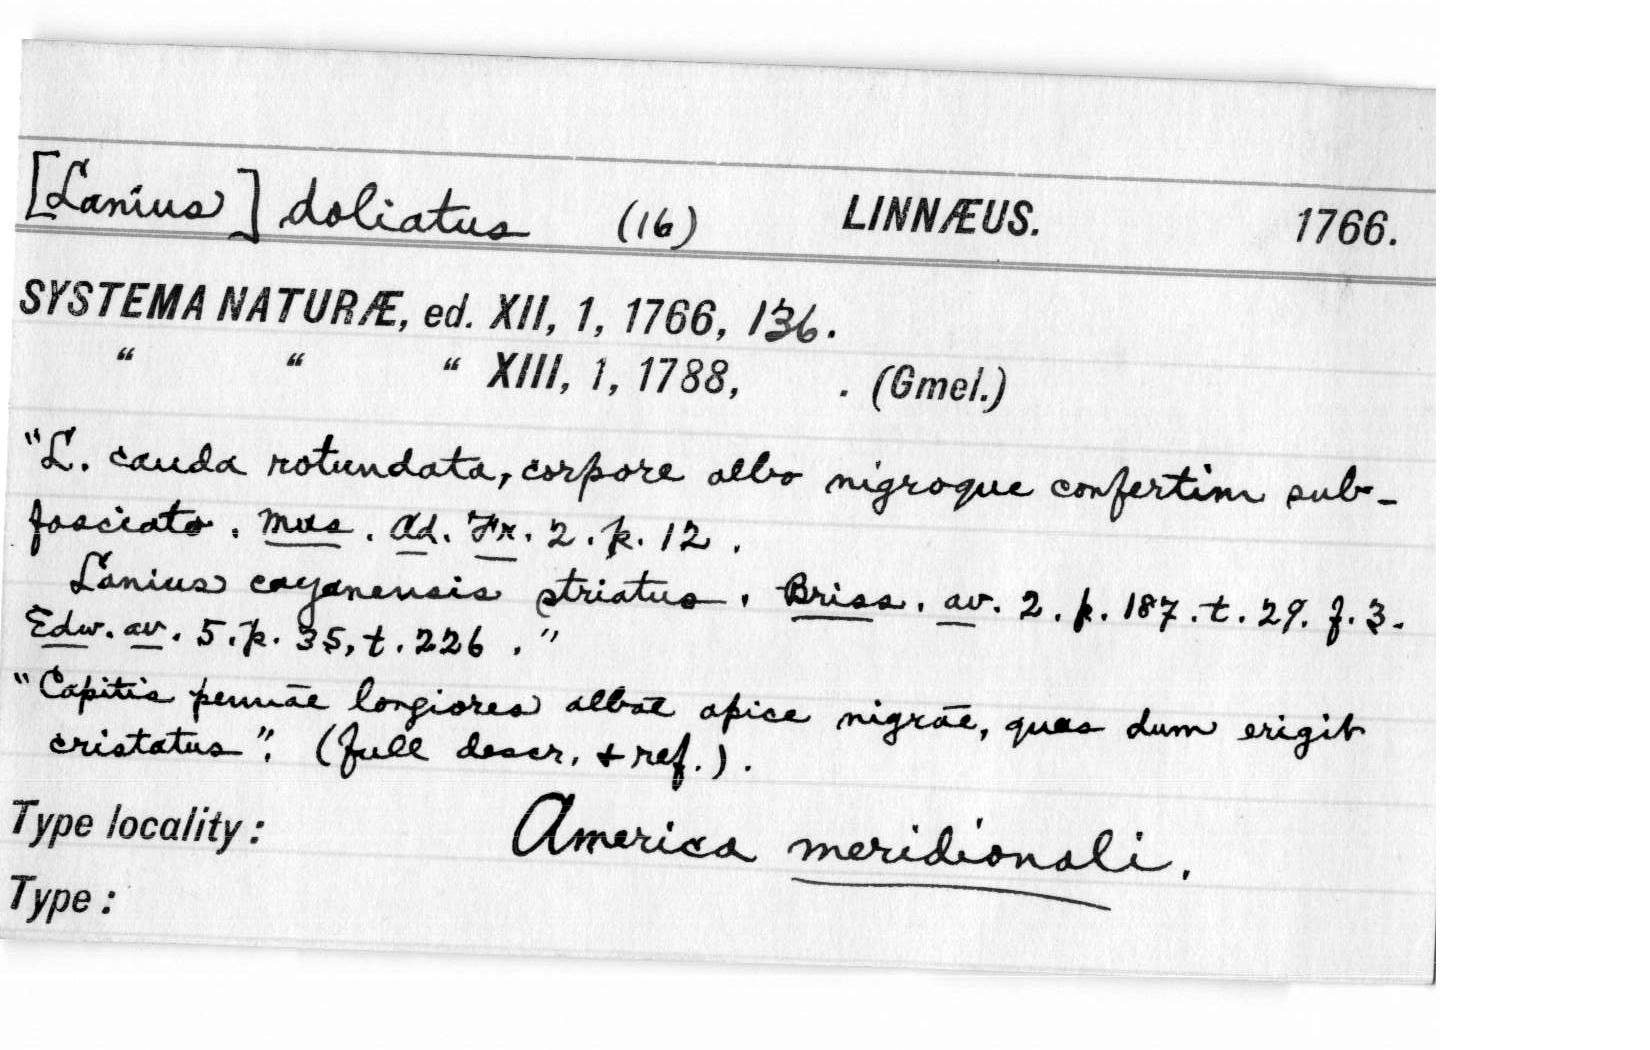 [Lanius] doliatus (16) LINNÆUS. 1766.
SYSTEMA NATURÆ, ed. XII, 1, 1766, 136.
" " " XIII, 1, 1788, . (Gmel.)
"L. cauda rotundata, corpore albo nigroque confertim sub-
fasciato. Mus. Ad. Fr. 2. p. 12.
Lanius cayanensis striatus. Briss. av. 2. p. 187. t. 29. f. 3.
Edw. av. 5. p. 35, t. 226."
"Capitis pennae longiores albae apice nigrae, quas dum erigit
cristatus". (full descr. + ref.).
Type locality: America meridionali.
Type: